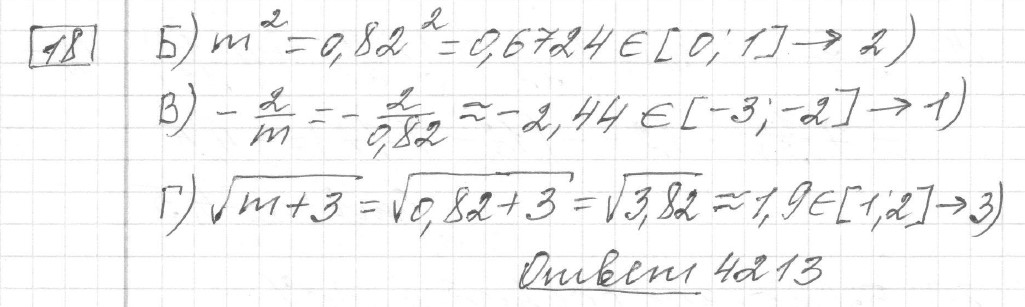 18 Б) m² = 0,82² = 0,6724 ∈ [0; 1] → 2)
В) - 2/m = - 2/0,82 ≈ -2,44 ∈ [-3; -2] → 1)
Г) √(m+3) = √(0,82+3) = √3,82 ≈ 1,9 ∈ [1; 2] → 3)
Ответ 4213